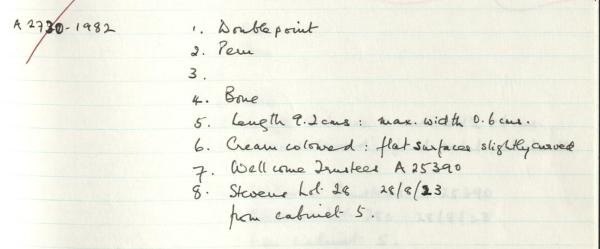 A 2730-1982
1. Doublepoint
2. Peru
3.
4. Bone
5. Length 9.2cms : max. width 0.6cms.
6. Cream colored : flat surfaces slightly curved
7. Wellcome Trustees A 25390
8. Stevens Lot 28 28/8/23
from cabinet 5.